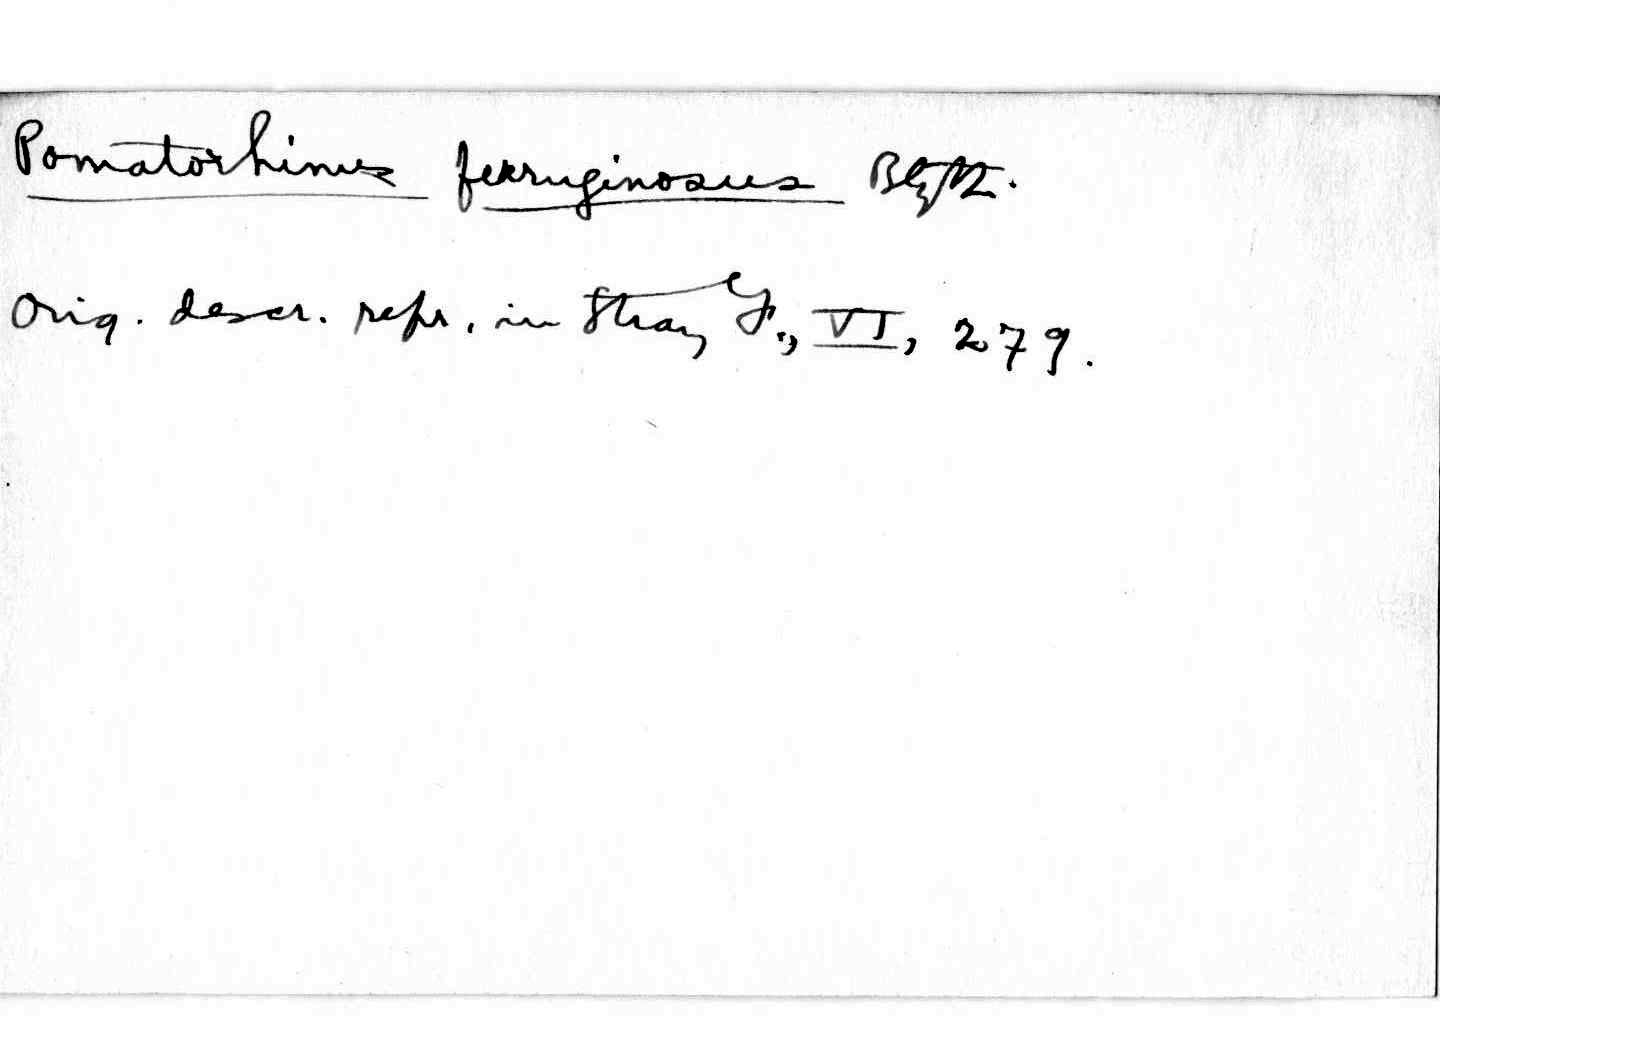 Pomatorhinus ferruginosus Blyth.
Orig. descr. repr. in Stray F., VI, 279.